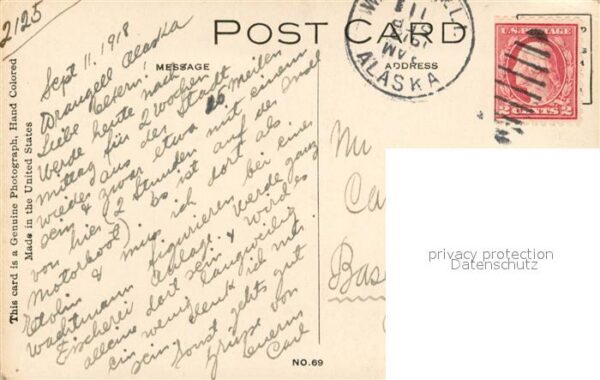 2125
POST CARD
MESSAGE
ADDRESS
WRANGELL
SEP 11
AM
ALASKA
U.S. POSTAGE
2 CENTS 2
This card is a Genuine Photograph, Hand Colored
Made in the United States
Sept 11. 1918
Wrangell Alaska
Liebe Eltern!
Werde heute nach-
mittag für 2 Wochen
wieder aus der Stadt
sein & zwar etwa 25 Meilen
von hier (2 Stunden mit einem
Motorboot). Es ist auf der Insel
Etolin & muss ich dort als
Wachtmann figurieren bei einer
Fischerei Anlage. Werde ganz
alleine dort sein & wird es
ein wenig langweilig
sein, denk ich mir.
Sonst gehts gut
Grüsse von
Eurem
Carl
Ca
Bas
NO. 69
privacy protection
Datenschutz